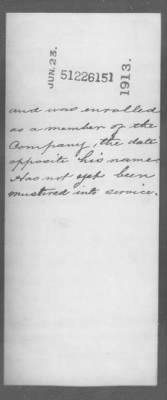 JUN. 23.
51226151
1913.
and was enrolled
as a member of the
Company, the date
opposite his name.
Has not yet been
mustered into service.